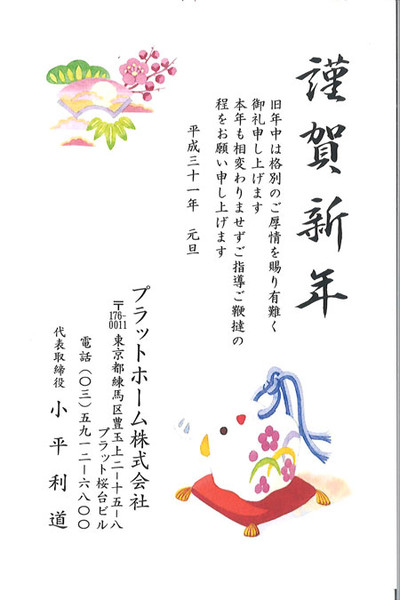 謹賀新年
旧年中は格別のご厚情を賜り有難く
御礼申し上げます
本年も相変わりませずご指導ご鞭撻の
程をお願い申し上げます
平成三十一年 元旦
プラットホーム株式会社
〒176-0011 東京都練馬区豊玉上二ー十五ー八
プラット桜台ビル
電話(〇三)五九一二ー六八〇〇
代表取締役 小平利道